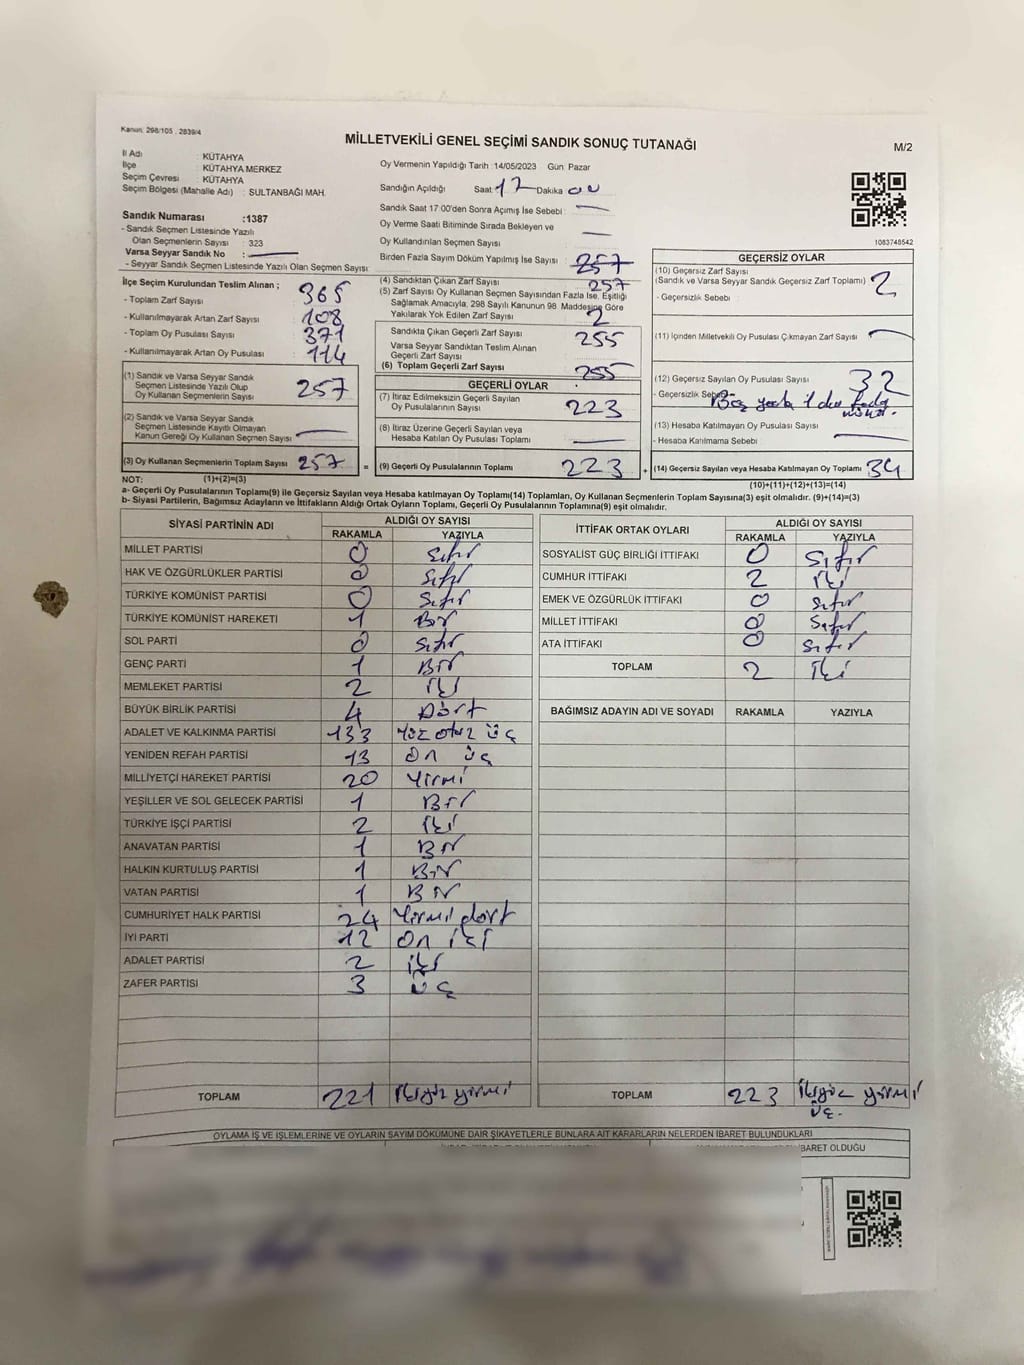 Kanun: 298/105 , 2839/4
MİLLETVEKİLİ GENEL SEÇİMİ SANDIK SONUÇ TUTANAĞI
M/2
İl Adı : KÜTAHYA
İlçe : KÜTAHYA MERKEZ
Seçim Çevresi : KÜTAHYA
Seçim Bölgesi (Mahalle Adı) : SULTANBAĞI MAH.
Oy Vermenin Yapıldığı Tarih :14/05/2023 Gün: Pazar
Sandığın Açıldığı Saat 17 Dakika 00
Sandık Saat 17:00'den Sonra Açımış İse Sebebi :
Oy Verme Saati Bitiminde Sırada Bekleyen ve
Oy Kullandırılan Seçmen Sayısı
Birden Fazla Sayım Döküm Yapılmış İse Sayısı : 257
1083748542
Sandık Numarası :1387
- Sandık Seçmen Listesinde Yazılı
Olan Seçmenlerin Sayısı : 323
Varsa Seyyar Sandık No :
- Seyyar Sandık Seçmen Listesinde Yazılı Olan Seçmen Sayısı:
İlçe Seçim Kurulundan Teslim Alınan ;
- Toplam Zarf Sayısı : 365
- Kullanılmayarak Artan Zarf Sayısı : 108
- Toplam Oy Pusulası Sayısı : 371
- Kullanılmayarak Artan Oy Pusulası : 114
(1) Sandık ve Varsa Seyyar Sandık
Seçmen Listesinde Yazılı Olup
Oy Kullanan Seçmenlerin Sayısı 257
(2) Sandık ve Varsa Seyyar Sandık
Seçmen Listesinde Kayıtlı Olmayan
Kanun Gereği Oy Kullanan Seçmen Sayısı
(3) Oy Kullanan Seçmenlerin Toplam Sayısı 257
(4) Sandıktan Çıkan Zarf Sayısı : 257
(5) Zarf Sayısı Oy Kullanan Seçmen Sayısından Fazla İse, Eşitliği
Sağlamak Amacıyla, 298 Sayılı Kanunun 98. Maddesine Göre
Yakılarak Yok Edilen Zarf Sayısı : 2
Sandıkta Çıkan Geçerli Zarf Sayısı 255
Varsa Seyyar Sandıktan Teslim Alınan
Geçerli Zarf Sayısı
(6) Toplam Geçerli Zarf Sayısı 255
GEÇERLİ OYLAR
(7) İtiraz Edilmeksizin Geçerli Sayılan
Oy Pusulalarının Sayısı 223
(8) İtiraz Üzerine Geçerli Sayılan veya
Hesaba Katılan Oy Pusulası Toplamı
= (9) Geçerli Oy Pusulalarının Toplamı 223
GEÇERSİZ OYLAR
(10) Geçersiz Zarf Sayısı
(Sandık ve Varsa Seyyar Sandık Geçersiz Zarf Toplamı) 2
- Geçersizlik Sebebi :
(11) İçinden Milletvekili Oy Pusulası Çıkmayan Zarf Sayısı
(12) Geçersiz Sayılan Oy Pusulası Sayısı 32
- Geçersizlik Sebebi
(13) Hesaba Katılmayan Oy Pusulası Sayısı
- Hesaba Katılmama Sebebi
+ (14) Geçersiz Sayılan veya Hesaba Katılmayan Oy Toplamı 34
NOT: (1)+(2)=(3)
(10)+(11)+(12)+(13)=(14)
a- Geçerli Oy Pusulalarının Toplamı(9) ile Geçersiz Sayılan veya Hesaba katılmayan Oy Toplamı(14) Toplamları, Oy Kullanan Seçmenlerin Toplam Sayısına(3) eşit olmalıdır. (9)+(14)=(3)
b- Siyasi Partilerin, Bağımsız Adayların ve İttifakların Aldığı Ortak Oyların Toplamı, Geçerli Oy Pusulalarının Toplamına(9) eşit olmalıdır.
SİYASİ PARTİNİN ADI
ALDIĞI OY SAYISI
RAKAMLA YAZIYLA
MİLLET PARTİSİ 0 Sıfır
HAK VE ÖZGÜRLÜKLER PARTİSİ 0 Sıfır
TÜRKİYE KOMÜNİST PARTİSİ 0 Sıfır
TÜRKİYE KOMÜNİST HAREKETİ 1 Bir
SOL PARTİ 0 Sıfır
GENÇ PARTİ 1 Bir
MEMLEKET PARTİSİ 2 İki
BÜYÜK BİRLİK PARTİSİ 4 Dört
ADALET VE KALKINMA PARTİSİ 133 Yüz otuz üç
YENİDEN REFAH PARTİSİ 13 On üç
MİLLİYETÇİ HAREKET PARTİSİ 20 Yirmi
YEŞİLLER VE SOL GELECEK PARTİSİ 1 Bir
TÜRKİYE İŞÇİ PARTİSİ 2 İki
ANAVATAN PARTİSİ 1 Bir
HALKIN KURTULUŞ PARTİSİ 1 Bir
VATAN PARTİSİ 1 Bir
CUMHURİYET HALK PARTİSİ 24 Yirmi dört
İYİ PARTİ 12 On iki
ADALET PARTİSİ 2 iki
ZAFER PARTİSİ 3 üç
TOPLAM 221 İkiyüz yirmi
İTTİFAK ORTAK OYLARI
ALDIĞI OY SAYISI
RAKAMLA YAZIYLA
SOSYALİST GÜÇ BİRLİĞİ İTTİFAKI 0 Sıfır
CUMHUR İTTİFAKI 2 İki
EMEK VE ÖZGÜRLÜK İTTİFAKI 0 Sıfır
MİLLET İTTİFAKI 0 Sıfır
ATA İTTİFAKI 0 Sıfır
TOPLAM 2 İki
BAĞIMSIZ ADAYIN ADI VE SOYADI RAKAMLA YAZIYLA
TOPLAM 223 İkiyüz yirmi
üç.
OYLAMA İŞ VE İŞLEMLERİNE VE OYLARIN SAYIM DÖKÜMÜNE DAİR ŞİKAYETLERLE BUNLARA AİT KARARLARIN NELERDEN İBARET BULUNDUKLARI
İBARET OLDUĞU